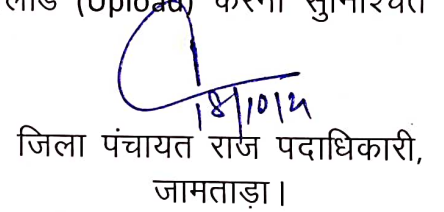 (Upload) करना सुनिश्चित
18/10/21
जिला पंचायत राज पदाधिकारी,
जामताड़ा।